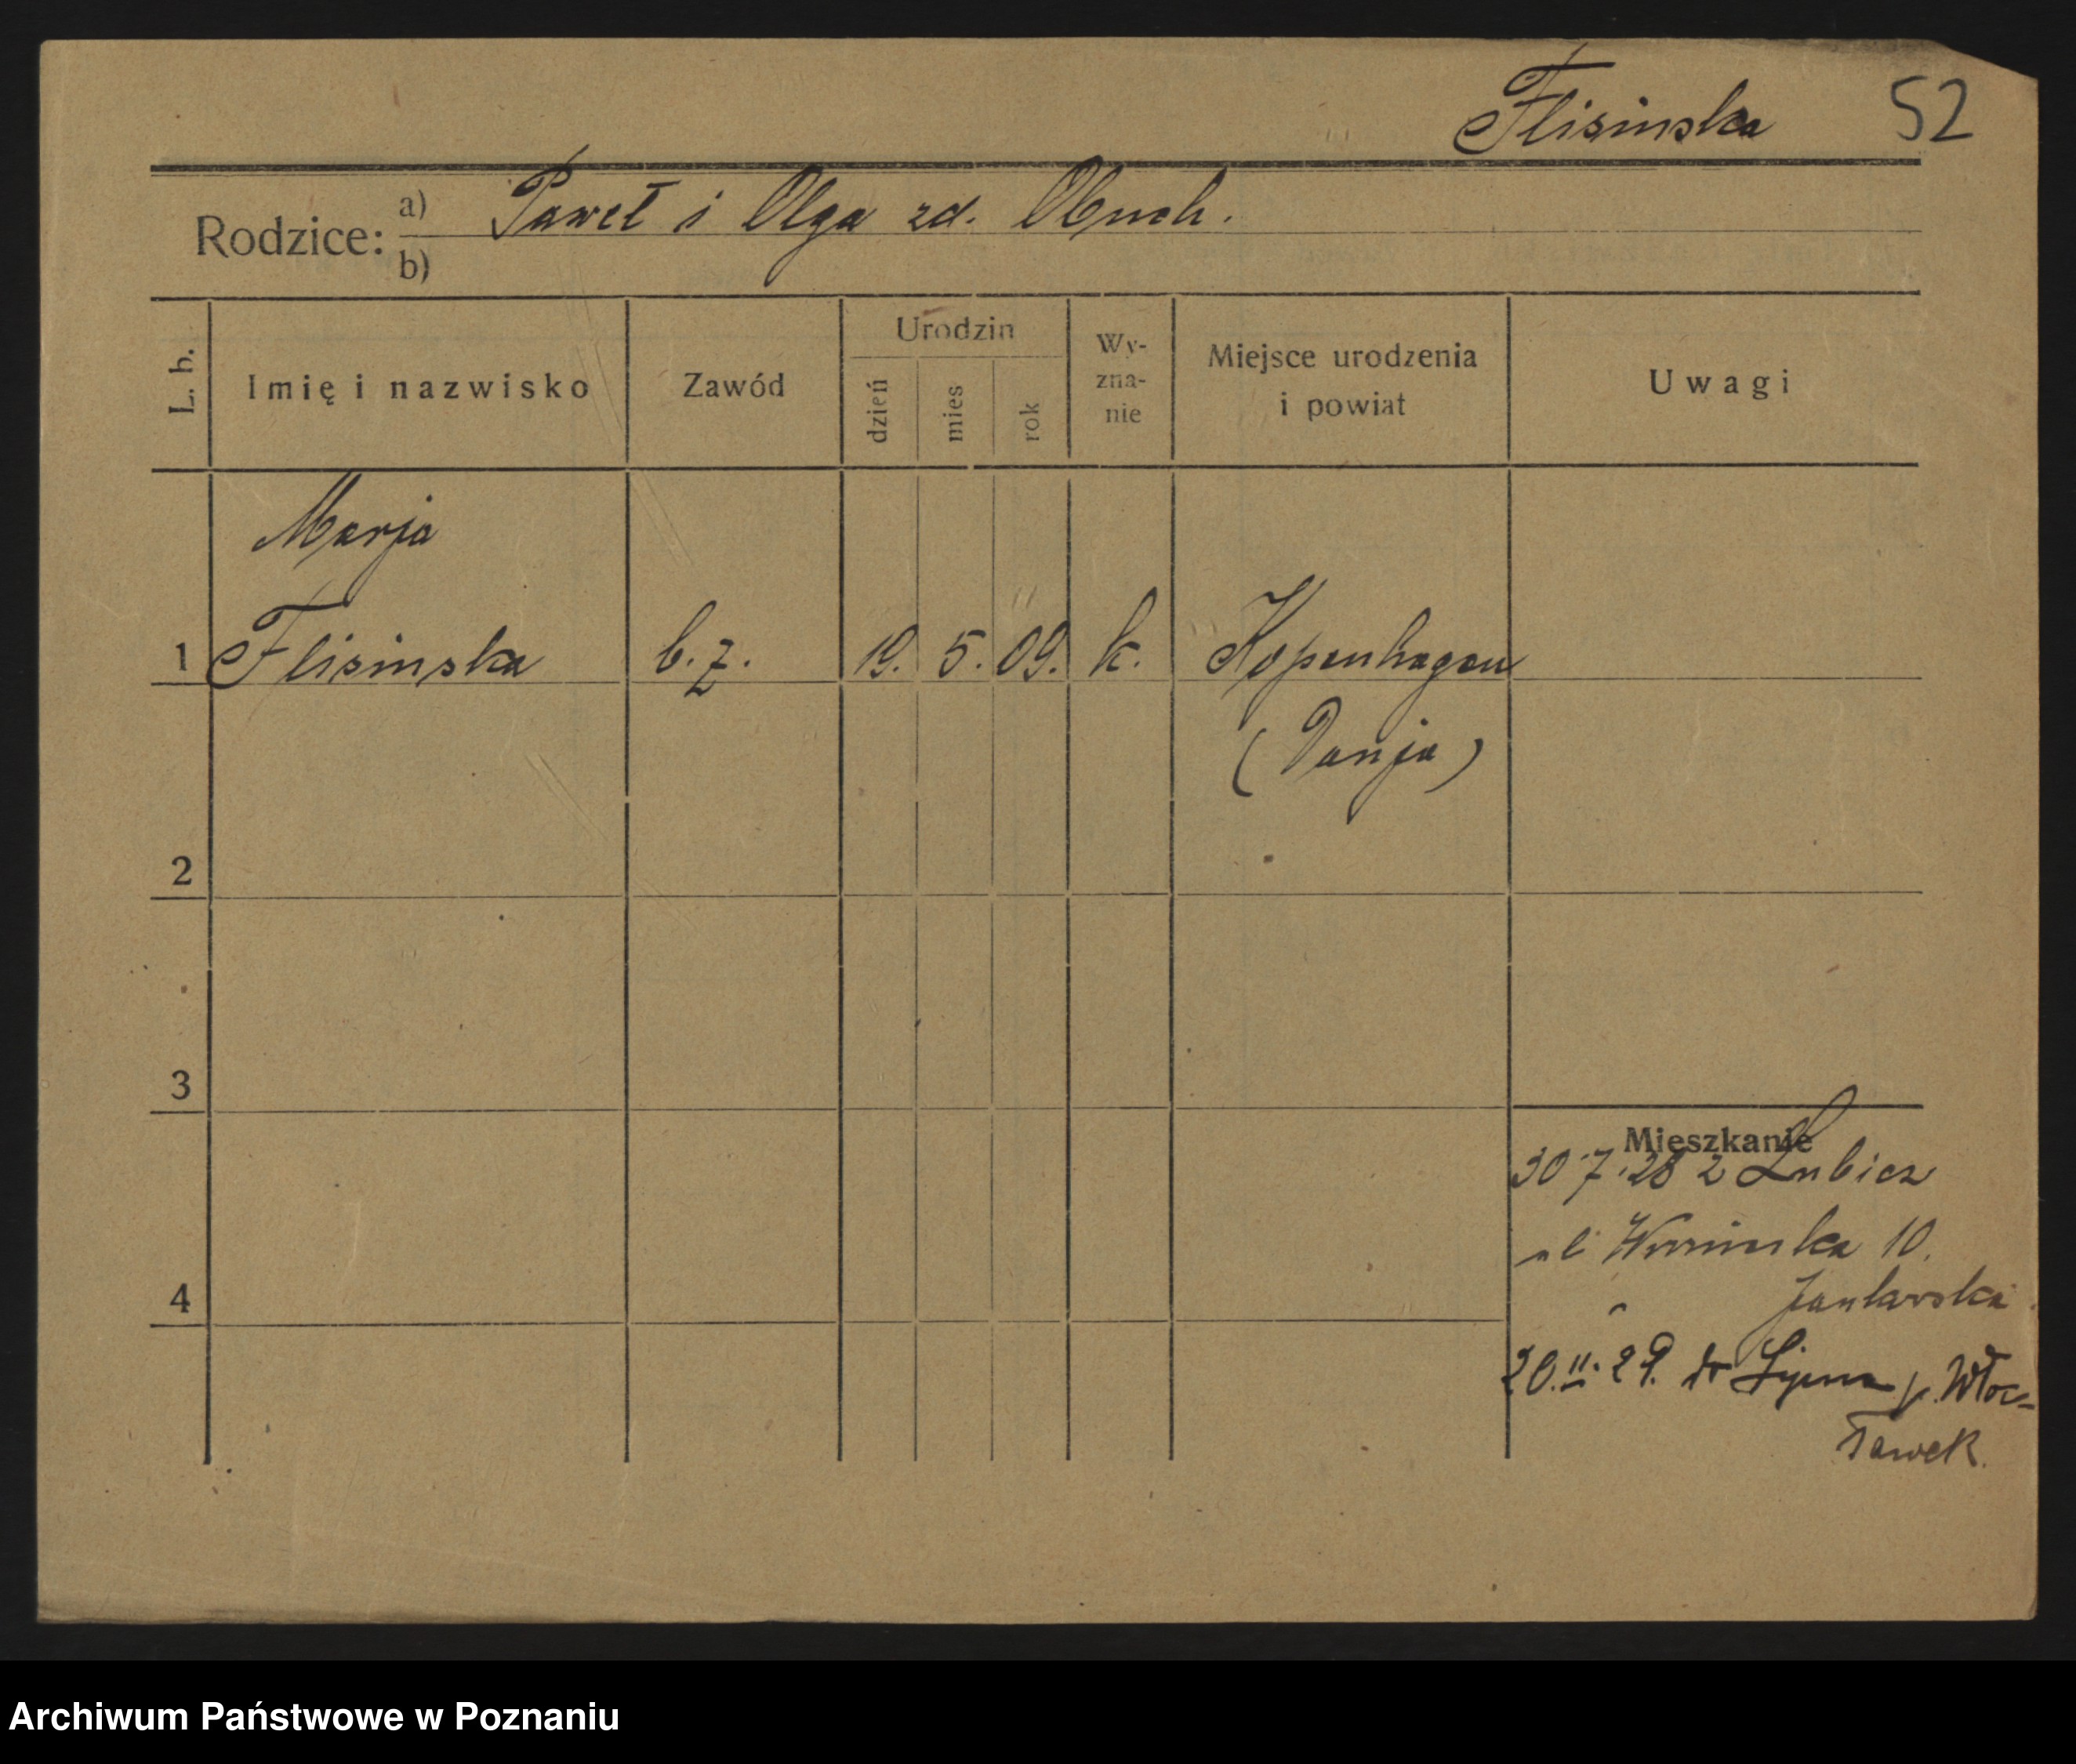 Flisinska 52
Rodzice: a) Paweł i Olga zd. Obuch.
b)
L. b. Imię i nazwisko Zawód Urodzin dzień mies rok Wy-zna-nie Miejsce urodzenia i powiat Uwagi
Marja
1 Flisinska b. z. 19. 5. 09. k. Kopenhagen
(Danja)
2
3
Mieszkanie
30.7.28 z Lubicz
10.
4
20.II.29. do p. Włoc-
ławek.
Archiwum Państwowe w Poznaniu